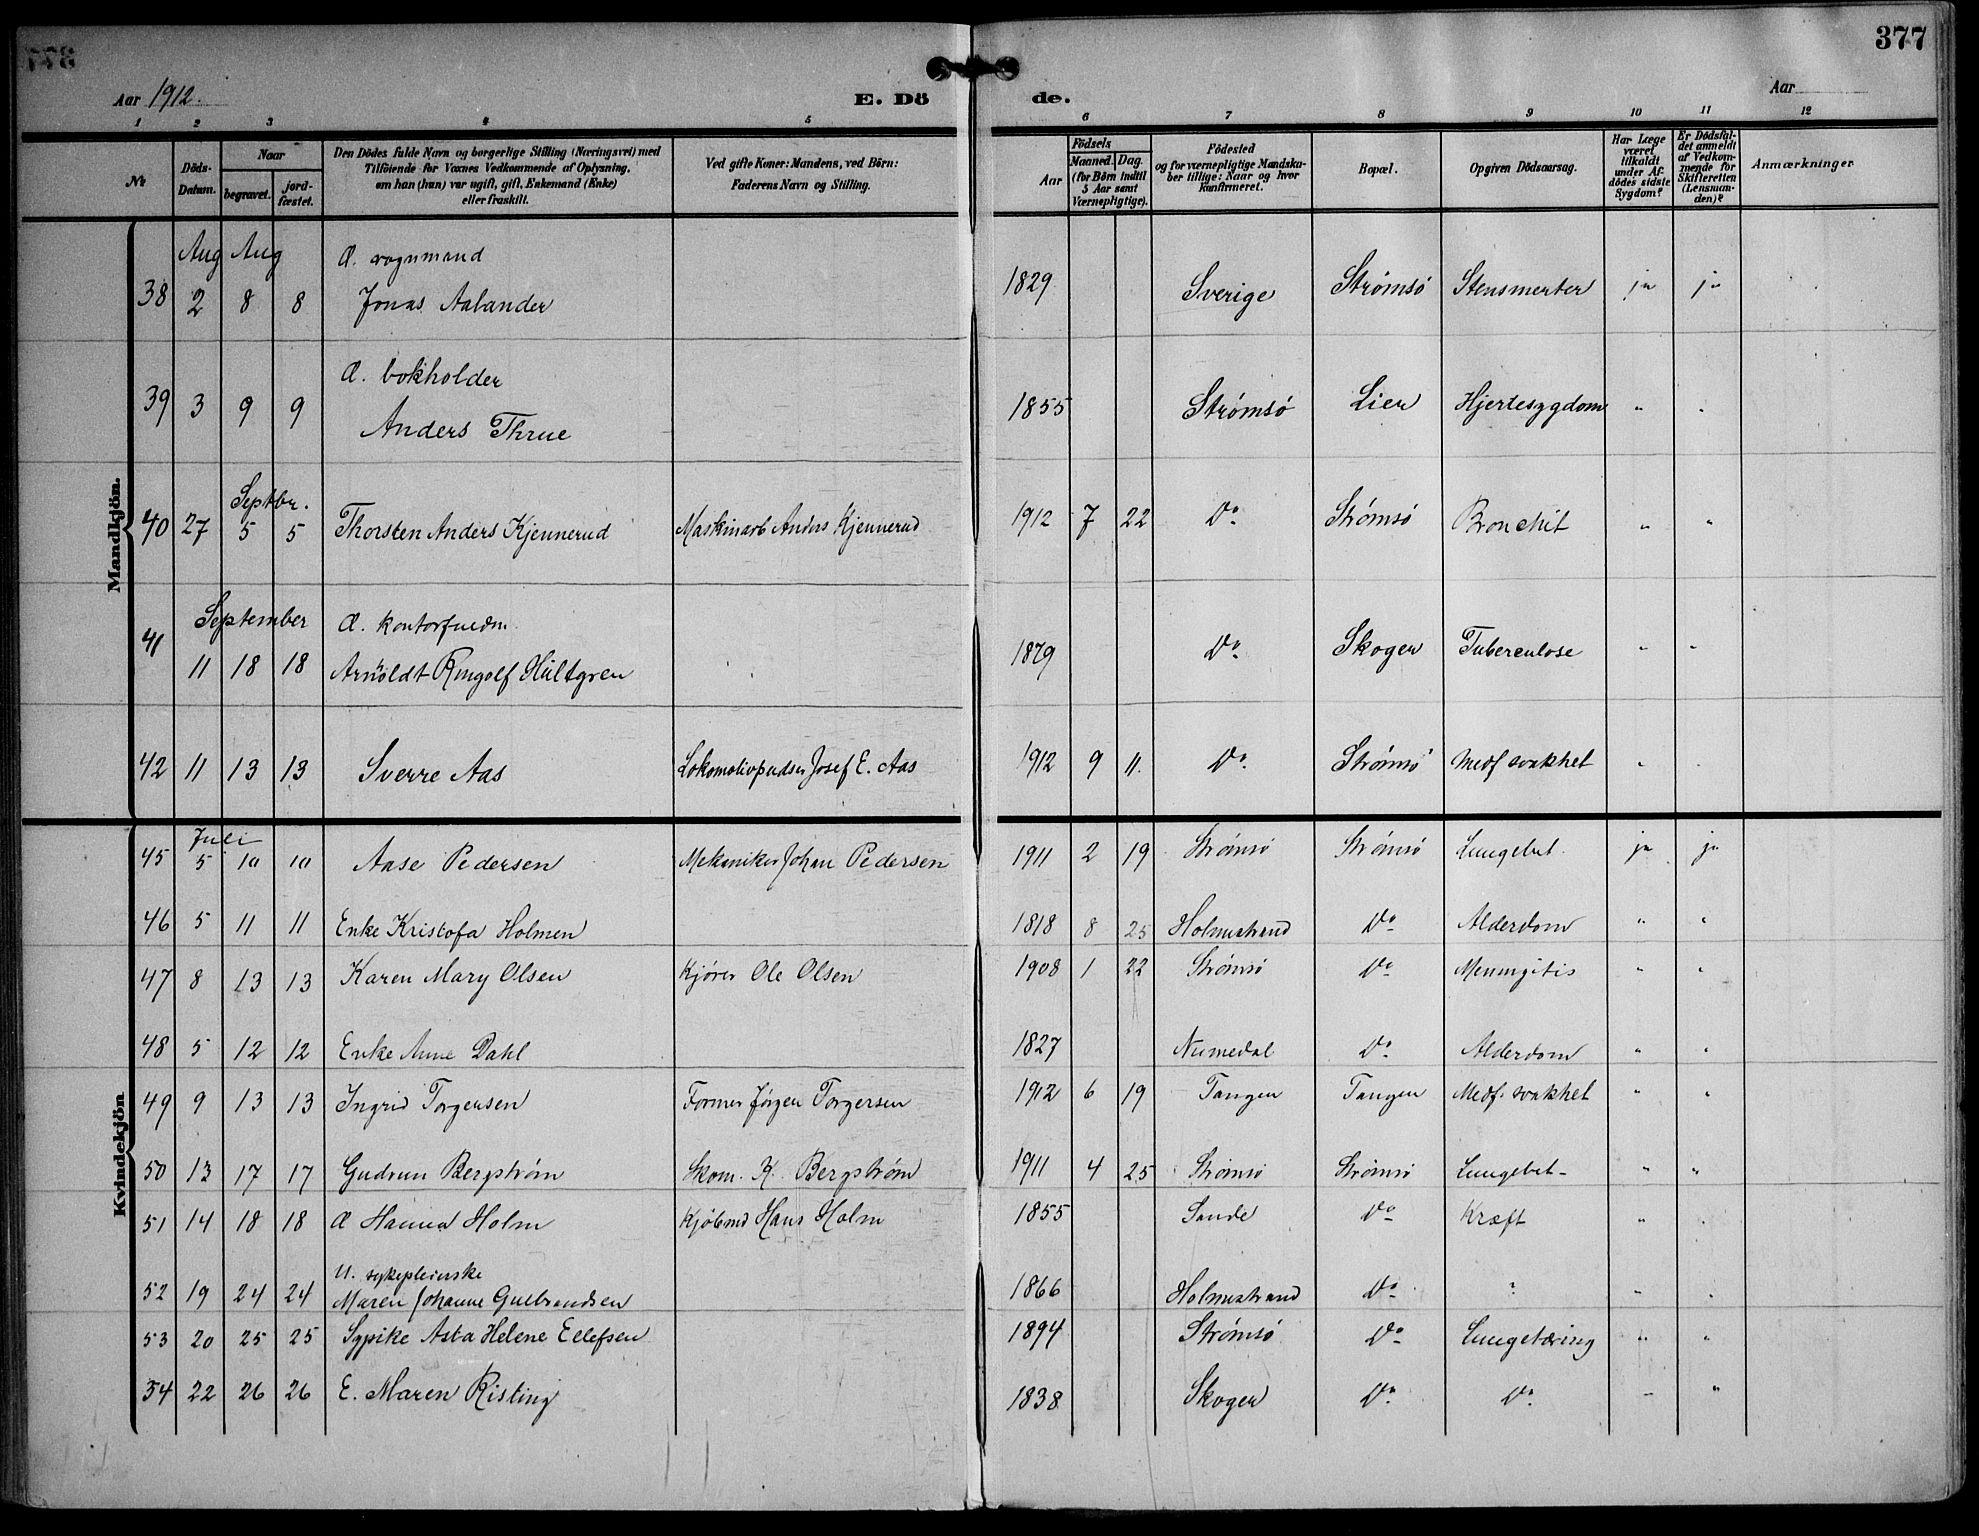 377
Aar 1912.
E. Dö de.
Aar
1 2 3 4 5 6 7 8 9 10 11 12
№
Döds-Datum.
Naar
begravet.
jord-fæstet.
Den Dödes fulde Navn og borgerlige Stilling (Næringsvei) med
Tilföiende for Voxnes Vedkommende af Oplysning,
om han (hun) var ugift, gift, Enkemand (Enke)
eller fraskilt.
Ved gifte Koner: Mandens, ved Börn:
Faderens Navn og Stilling.
Födsels
Aar
Maaned. Dag.
(for Börn indtil
5 Aar samt
Værnepligtige).
Födested
og for værnepligtige Mandska-
ber tillige: Naar og hvor
Konfirmeret.
Bopæl.
Opgiven Dödsaarsag.
Har Læge
været
tilkaldt
under Af-
dödes sidste
Sygdom?
Er Dödsfal-
det anmeldt
af Vedkom-
mende for
Skifteretten
(Lensman-
den)?
Anmærkninger
Mandkjön.
Aug Aug
Æ. vognmand
38 2 8 8 Jonas Aalander 1829 Sverige Strømsø Stensmerter ja ja
Æ. bokholder
39 3 9 9 Anders Thrue 1855 Strømsø Lier Hjertesygdom " "
Septbr.
40 27 5 5 Thorsten Anders Kjennerud Maskinarb Anders Kjennerud 1912 7 22 Do Strømsø Bronchit " "
September Æ. kontorfuldm.
41 11 18 18 Arnoldt Ringolf Hultgren 1879 Do Skoger Tuberculose " "
42 11 13 13 Sverre Aas Lokomotivpudser Josef E. Aas 1912 9 11. Do Strømsø Medf svakhet " "
Kvindekjön
Juli
45 5 10 10 Aase Pedersen Mekaniker Johan Pedersen 1911 2 19 Strømsø Strømsø Lungebet. ja ja
46 5 11 11 Enke Kristofa Holmen 1818 8 25 Holmestrand Do Alderdom " "
47 8 13 13 Karen Mary Olsen Kjører Ole Olsen 1908 1 22 Strømsø Do Meningitis " "
48 5 12 12 Enke Anne Dahl 1827 Numedal Do Alderdom " "
49 9 13 13 Ingrid Torgersen Former Jørgen Torgersen 1912 6 19 Tangen Tangen Medf. svakhet " "
50 13 17 17 Gudrun Bergstrøm Skom. K. Bergstrøm 1911 4 25 Strømsø Strømsø Lungebet- " "
51 14 18 18 Æ Hanna Holm Kjøbmd Hans Holm 1855 Sande Do Kræft "
U. sykepleierske
52 19 24 24 Maren Johanne Gulbrandsen 1866 Holmestrand Do ? " "
53 20 25 25 Sypike Asta Helene Ellefsen 1894 Strømsø Do Lungetæring " "
54 22 26 26 E. Maren Risting 1838 Skoger Do Do " "